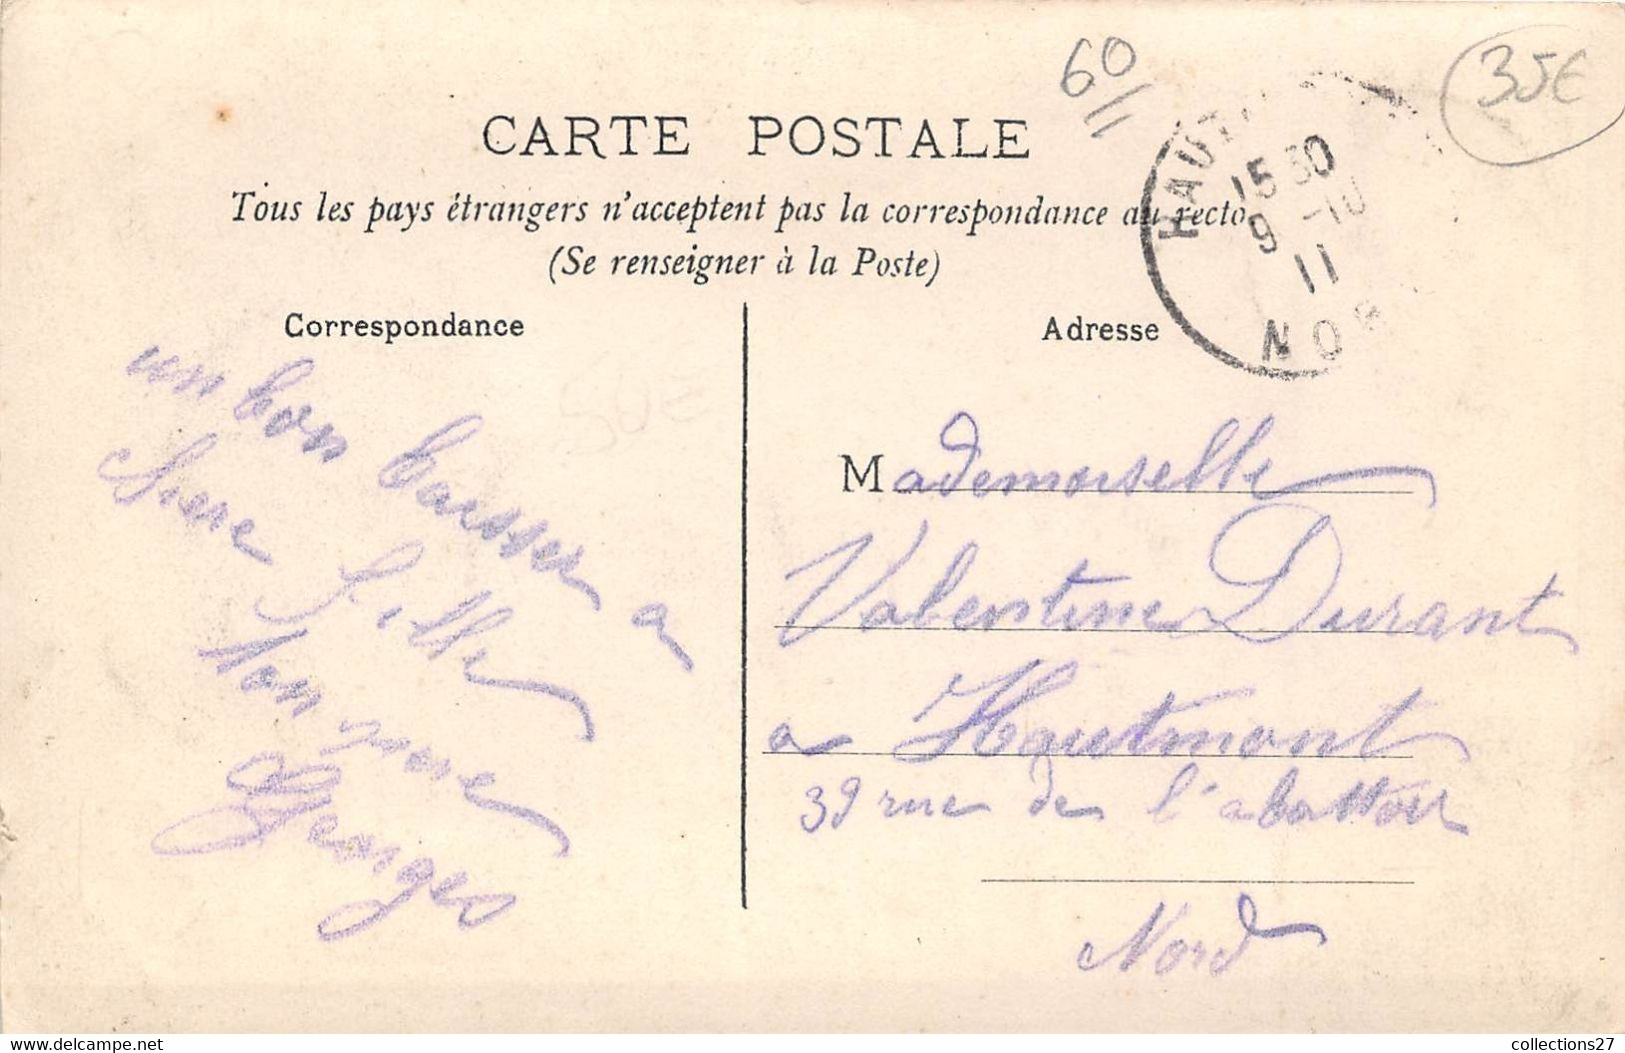 60
35€
CARTE POSTALE
Tous les pays étrangers n'acceptent pas la correspondance au recto
(Se renseigner à la Poste)
HAUT
15 30
9 -10
11
NOR
Correspondance
50€
un bon baisser a
chere fille
Ton pere
Georges
Adresse
Mademoiselle
Valentine Durant
a Hautmont
39 rue de l'abattoir
Nord
www.delcampe.net
collections27